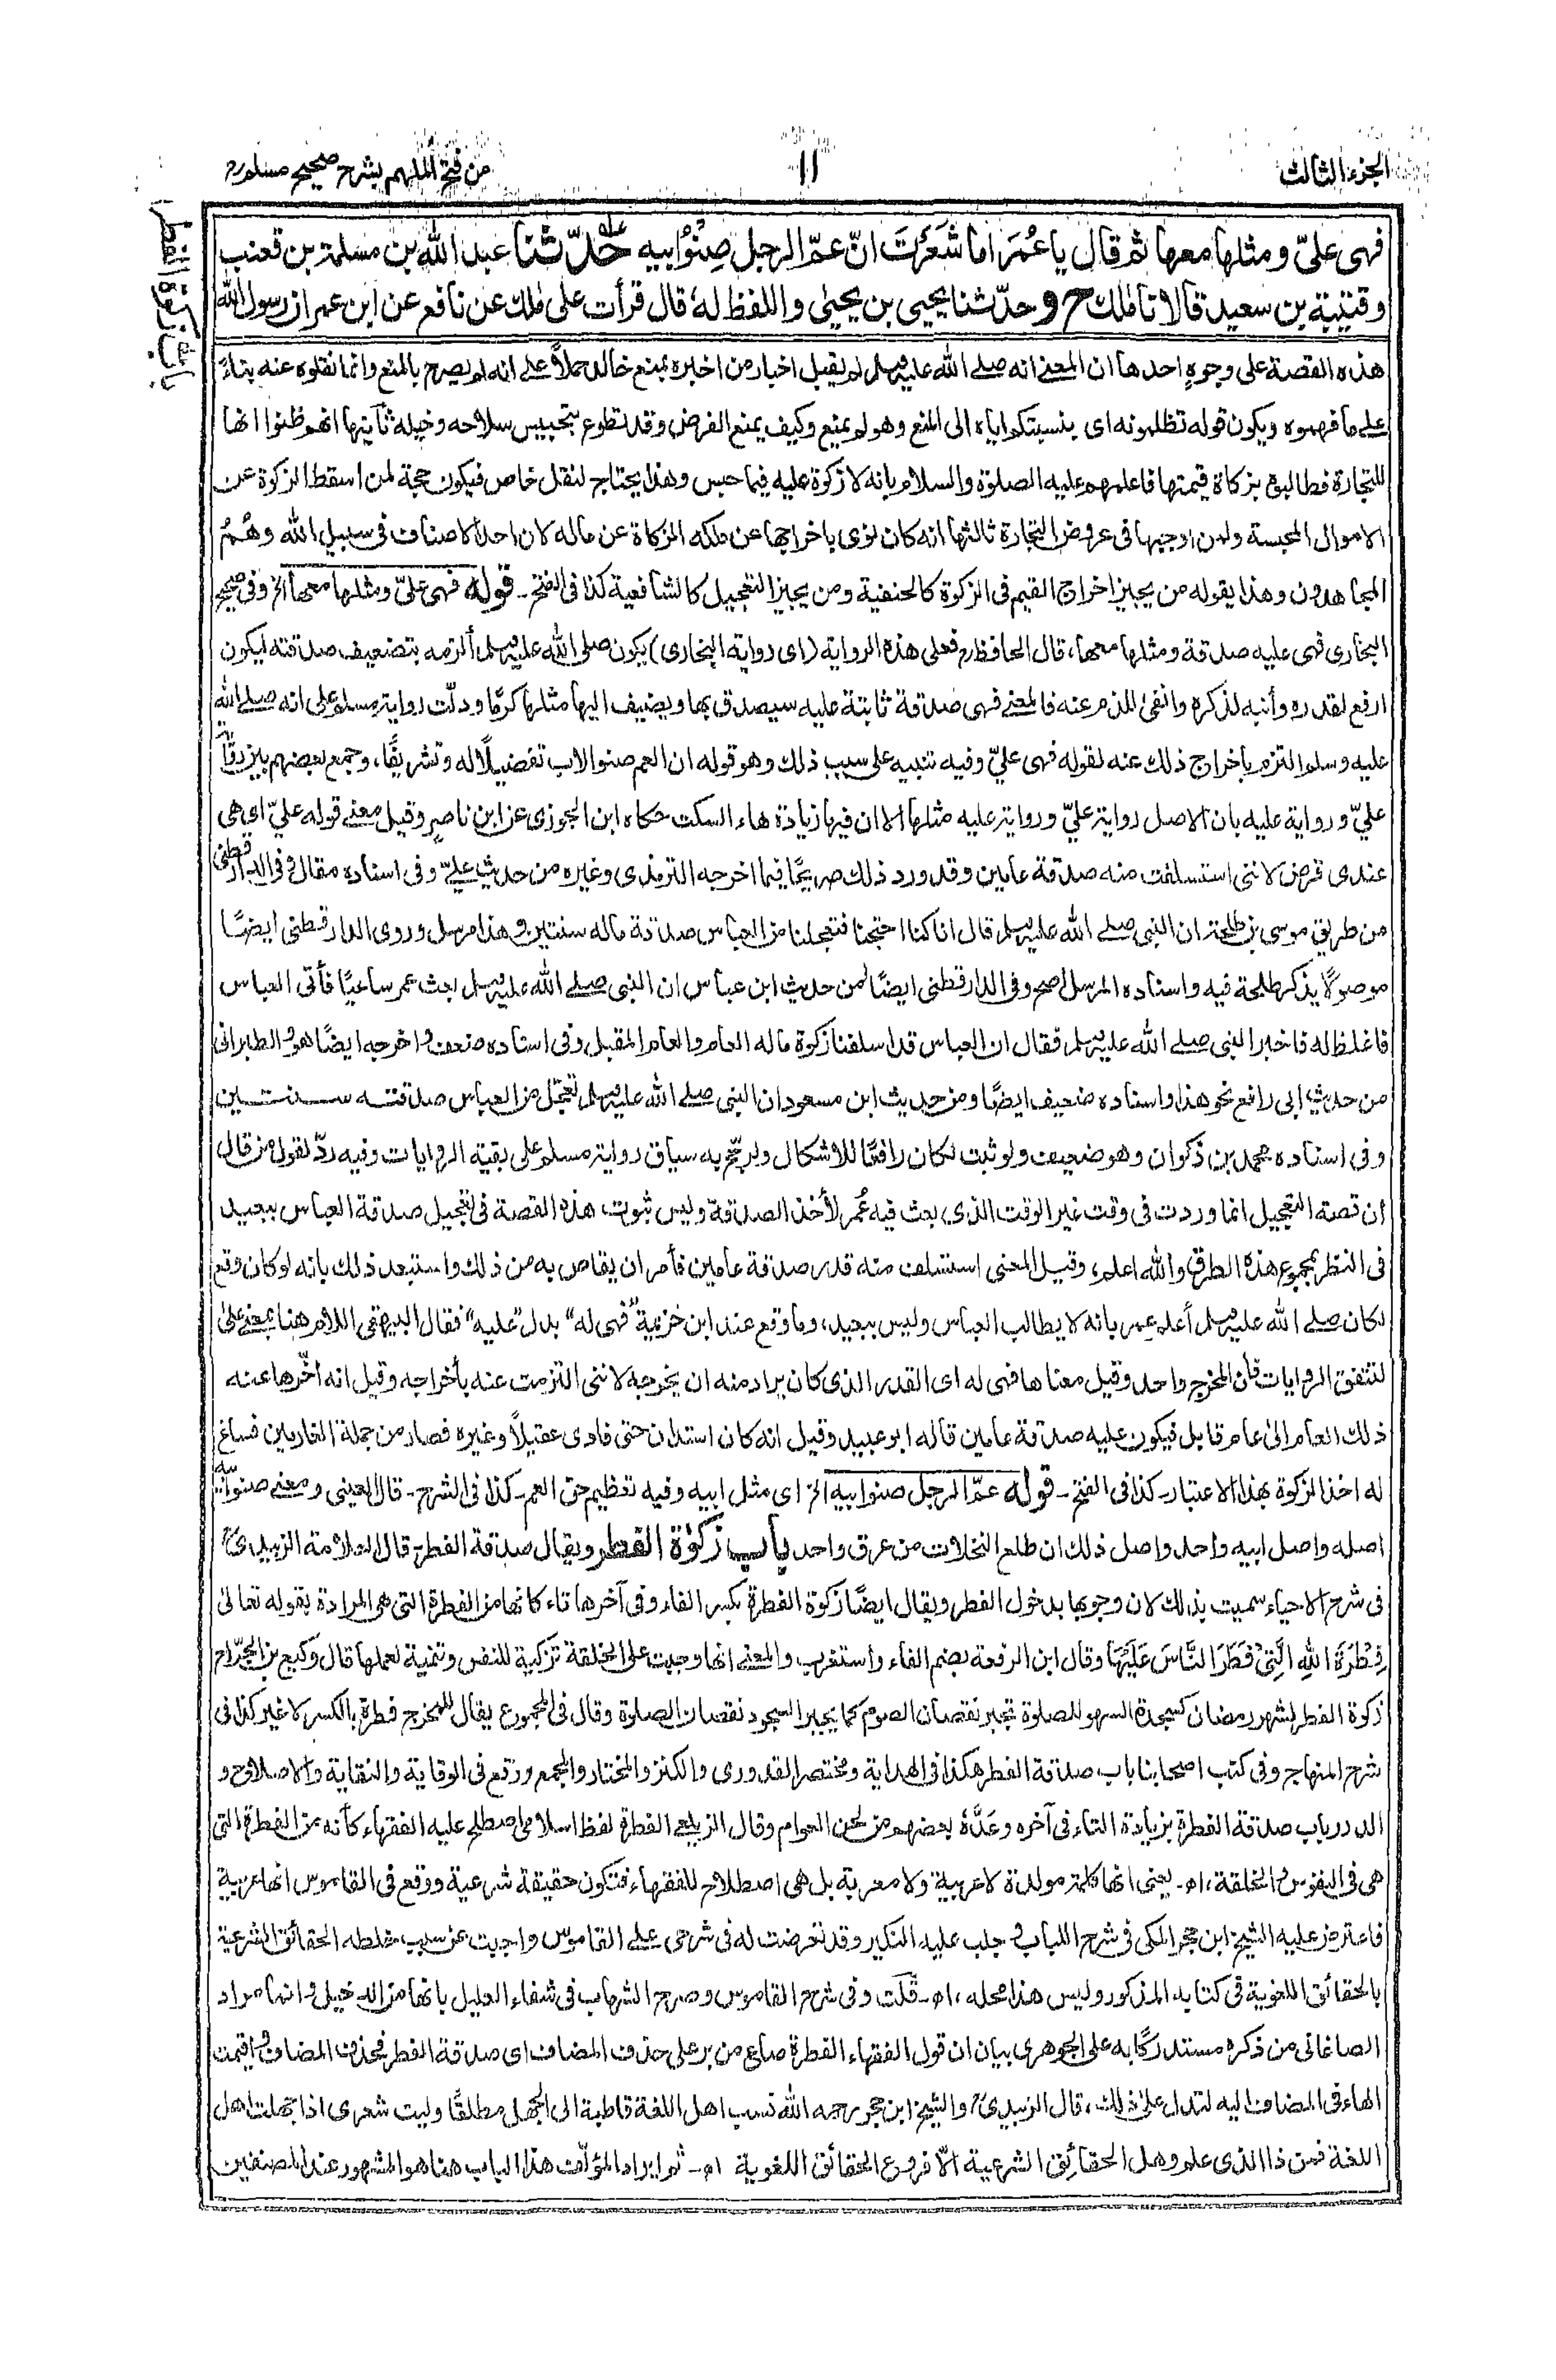 الجزء الثالث
١١
من فتح الملهم بشرح صحيح مسلم
باب زكوة الفطر
فهي عليّ ومثلها معها ثم قال يا عُمَر اما شَعَرْتَ انّ عمّ الرجل صِنْوُ ابيه حدّثنا عبد الله بن مسلمة بن قعنب
وقتيبة بن سعيد قالا نا مٰلك ح وحدّثنا يحيى بن يحيىٰ واللفظ له قال قرأت على مٰلك عن نافع عن ابن عمر ان رسول الله
هذه القصة على وجوهٍ احدها ان المعنى انه صلے الله عليه وسلم لم يقبل اخبار من اخبره بمنع خالد حملاً على انه لم يصرح بالمنع وانما نقلوه عنه بناءً
على ما فهموه ويكون قوله تظلمونه اى بنسبتكم اياه الى المنع وهو لم يمنع وكيف يمنع الفرض وقد تطوع بتحبيس سلاحه وخيله ثانيها انهم ظنوا انها
للتجارة فطالبوه بزكاة قيمتها فاعلمهم عليه الصلوة والسلام بانه لا زكوة عليه فيما حبس وهذا يحتاج لنقل خاص فيكون حجة لمن اسقط الزكوة عن
الاموال المحبسة ولمن اوجبها فى عروض التجارة ثالثها انه كان نوى باخراجها عن ملكه الزكاة عن ماله لان احد الاصناف فى سبيل الله وهُمُ
المجاهدون وهذا يقوله من يجيز اخراج القيم فى الزكوة كالحنفية ومن يجيز التعجيل كالشافعية كذا فى الفتح ـ قوله فهى علىّ ومثلها معها الخ وفى صحيح
البخارى فهى عليه صدقة ومثلها معها، قال الحافظ فعلى هذه الرواية (اى رواية البخارى) يكون صلى الله عليه وسلم ألزمه بتضعيف صدقته ليكون
ارفع لقدره وأنبه لذكره وانفىٰ للذم عنه فالمعنى فهى صدقة ثابتة عليه سيصدق بها ويضيف اليها مثلها كرمًا ودلّت رواية مسلم على انه صلے الله
عليه وسلم التزم بأخراج ذلك عنه لقوله فهى علىّ وفيه تنبيه على سبب ذلك وهو قوله ان العم صنو الاب تفضيلًا له وتشريفًا، وجمع بعضهم بين رواية
علىّ ورواية عليه بان الاصل رواية علىّ ورواية عليه مثلها الا ان فيها زيادة هاء السكت حكاه ابن الجوزى عن ابن ناصرٍ وقيل معنى قوله علىّ اى هى
عندى قرض لاننى استسلفت منه صدقة عامين وقد ورد ذلك صريحًا فيما اخرجه الترمذى وغيره من حديث علىّ وفى اسناده مقال وفى الدارقطنى
من طريق موسى بن طلحة ان النبى صلے الله عليه وسلم قال انا كنا احتجنا فتعجلنا من العباس صدقة ماله سنتين وهذا مرسل وروى الدارقطنى ايضًا
موصولًا بذكر طلحة فيه واسناده المرسل اصح وفى الدارقطنى ايضًا من حديث ابن عباس ان النبى صلے الله عليه وسلم بعث عمر ساعيًا فأتى العباس
فاغلظ له فاخبر النبى صلے الله عليه وسلم فقال ان العباس قد اسلفنا زكوة ماله العام والعام المقبل وفى اسناده ضعف واخرجه ايضًا هو والطبرانى
من حديث ابى رافع نحو هذا واسناده ضعيف ايضًا ومن حديث ابن مسعود ان النبى صلے الله عليه وسلم تعجّل من العباس صدقته سنتين
وفى اسناده محمد بن ذكوان وهو ضعيف ولو ثبت لكان رافعًا للاشكال ولرجّح به سياق رواية مسلم على بقية الروايات وفيه ردّ لقول من قال
ان قصة التعجيل انما وردت فى وقت غير الوقت الذى بعث فيه عُمر لأخذ الصدقة وليس ثبوت هذه القصة فى تعجيل صدقة العباس ببعيد
فى النظر بمجموع هذه الطرق والله اعلم، وقيل المعنى استسلف منه قدر صدقة عامين فأمر ان يقاص به من ذلك واستبعد ذلك بانه لو كان وقع
لكان صلے الله عليه وسلم أعلم عمر بانه لا يطالب العباس وليس ببعيد، وما وقع عند ابن خزيمة "فهى له" بدل "عليه" فقال البيهقى اللام هنا بمعنى علىٰ
لتتفق الروايات فان المخرج واحد وقيل معناها فهى له اى القدر الذى كان يراد منه ان يخرجه لاننى التزمت عنه بأخراجه وقيل انه اخّرها عنه
ذلك العام الىٰ عام قابل فيكون عليه صدقة عامين قاله ابو عبيد وقيل انه كان استدان حتى فادى عقيلًا وغيره فصار من جملة الغارمين فساغ
له اخذ الزكوة بهذا الاعتبار ـ كذا فى الفتح ـ قوله عمّ الرجل صنو ابيه الخ اى مثل ابيه وفيه تعظيم حق العم ـ كذا فى الشرح ـ قال العينى ومعنى صنو ابيه
اصله واصل ابيه واحد واصل ذلك ان طلع النخلات من عرق واحد باب زكوٰة الفطر ويقال صدقة الفطر، قال العلامة الزبيدى
فى شرح الاحياء سميت بذلك لان وجوبها بدخول الفطر ويقال ايضًا زكوة الفطرة بكسر الفاء وفى آخرها تاء كانها من الفطرة التى هى المرادة بقوله تعالىٰ
فِطْرَةَ اللهِ الَّتِىْ فَطَرَ النَّاسَ عَلَيْهَا وقال ابن الرفعة بضم الفاء واستغرب والمعنى انها وجبت على الخلقة تزكية للنفس وتنمية لعملها قال وكيع بن الجرّاح
زكوة الفطر لشهر رمضان كسجدة السهو للصلوة تجبر نقصان الصوم كما يجبر السجود نقصان الصلوة وقال فى المجموع يقال للمخرج فطرة بالكسر لا غير كذا فى
شرح المنهاج وفى كتب اصحابنا باب صدقة الفطر هكذا فى الهداية ومختصر القدورى والكنز والمختار والمجمع ووقع فى الوقاية والنقاية والاصلاح و
الدرر باب صدقة الفطرة بزيادة التاء فى آخره وعَدَّهٗ بعضهم من لحن العوام وقال الزيلعى الفطرة لفظ اسلامى اصطلح عليه الفقهاء كأنه من الفطرة التى
هى فى النفوس والخلقة، اھ ـ يعنى انها كلمة مولدة لا عربية ولا معربة بل هى اصطلاح للفقهاء فتكون حقيقة شرعية ووقع فى القاموس انها عربية
فاعترض عليه الشيخ ابن حجر المكى فى شرح اللباب وجلب عليه النكير وقد تعرضت له فى شرحى على القاموس واجبت عن سبب خلطه الحقائق الشرعية
بالحقائق اللغوية فى كتابه المذكور وليس هذا محله، اھ ـ قلت وفى شرح القاموس وصرح الشهاب فى شفاء العليل بانها من الدخيل وانها مراد
الصاغانى من ذكره مستدركًا به على الجوهرى بيان ان قول الفقهاء الفطرة صاع من بر على حذف المضاف اى صدقة الفطر فحذف المضاف واقيمت
الهاء فى المضاف اليه لتدل علىٰ ذلك، قال الزبيدى والشيخ ابن حجر رحمه الله نسب اهل اللغة قاطبة الى الجهل مطلقًا وليت شعرى اذا جهلت اهل
اللغة فمن ذا الذى علم وهل الحقائق الشرعية الّا فروع الحقائق اللغوية اھ ـ ثم ايراد المؤلّف هذا الباب هنا هو المشهور عند المصنفين